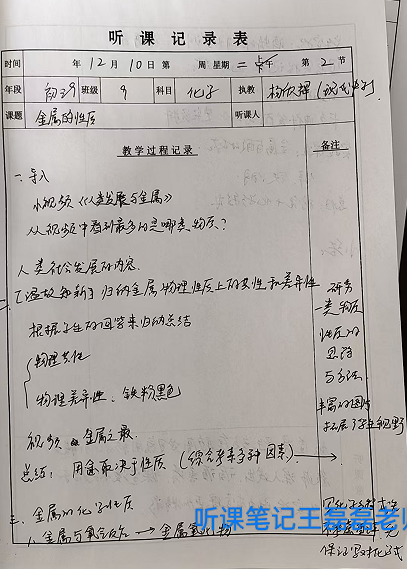 听课记录表
时间 年 12 月 10 日 第 周 星期 二 第 2 节
年段 初三 班级 9 科目 化学 执教
课题 金属的性质 听课人
教学过程记录 备注
一. 导入
小视频《人类发展与金属》
从视频中看到最多的是哪类物质?
人类社会发展的内容.
二.[温故知新]: 归纳金属物理性质上的共性和差异性
根据学生的回答来归纳总结
物理共性
物理差异性: 铁粉黑色
视频 金属之最
总结: 用途取决于性质 (综合考虑多种因素)
三. 金属的化学性质
1. 金属与氧气反应 → 金属氧化物
研究
一类物质
性质的
思路
与方法
丰富的图片
拓展了学生视野
听课笔记王磊磊老师